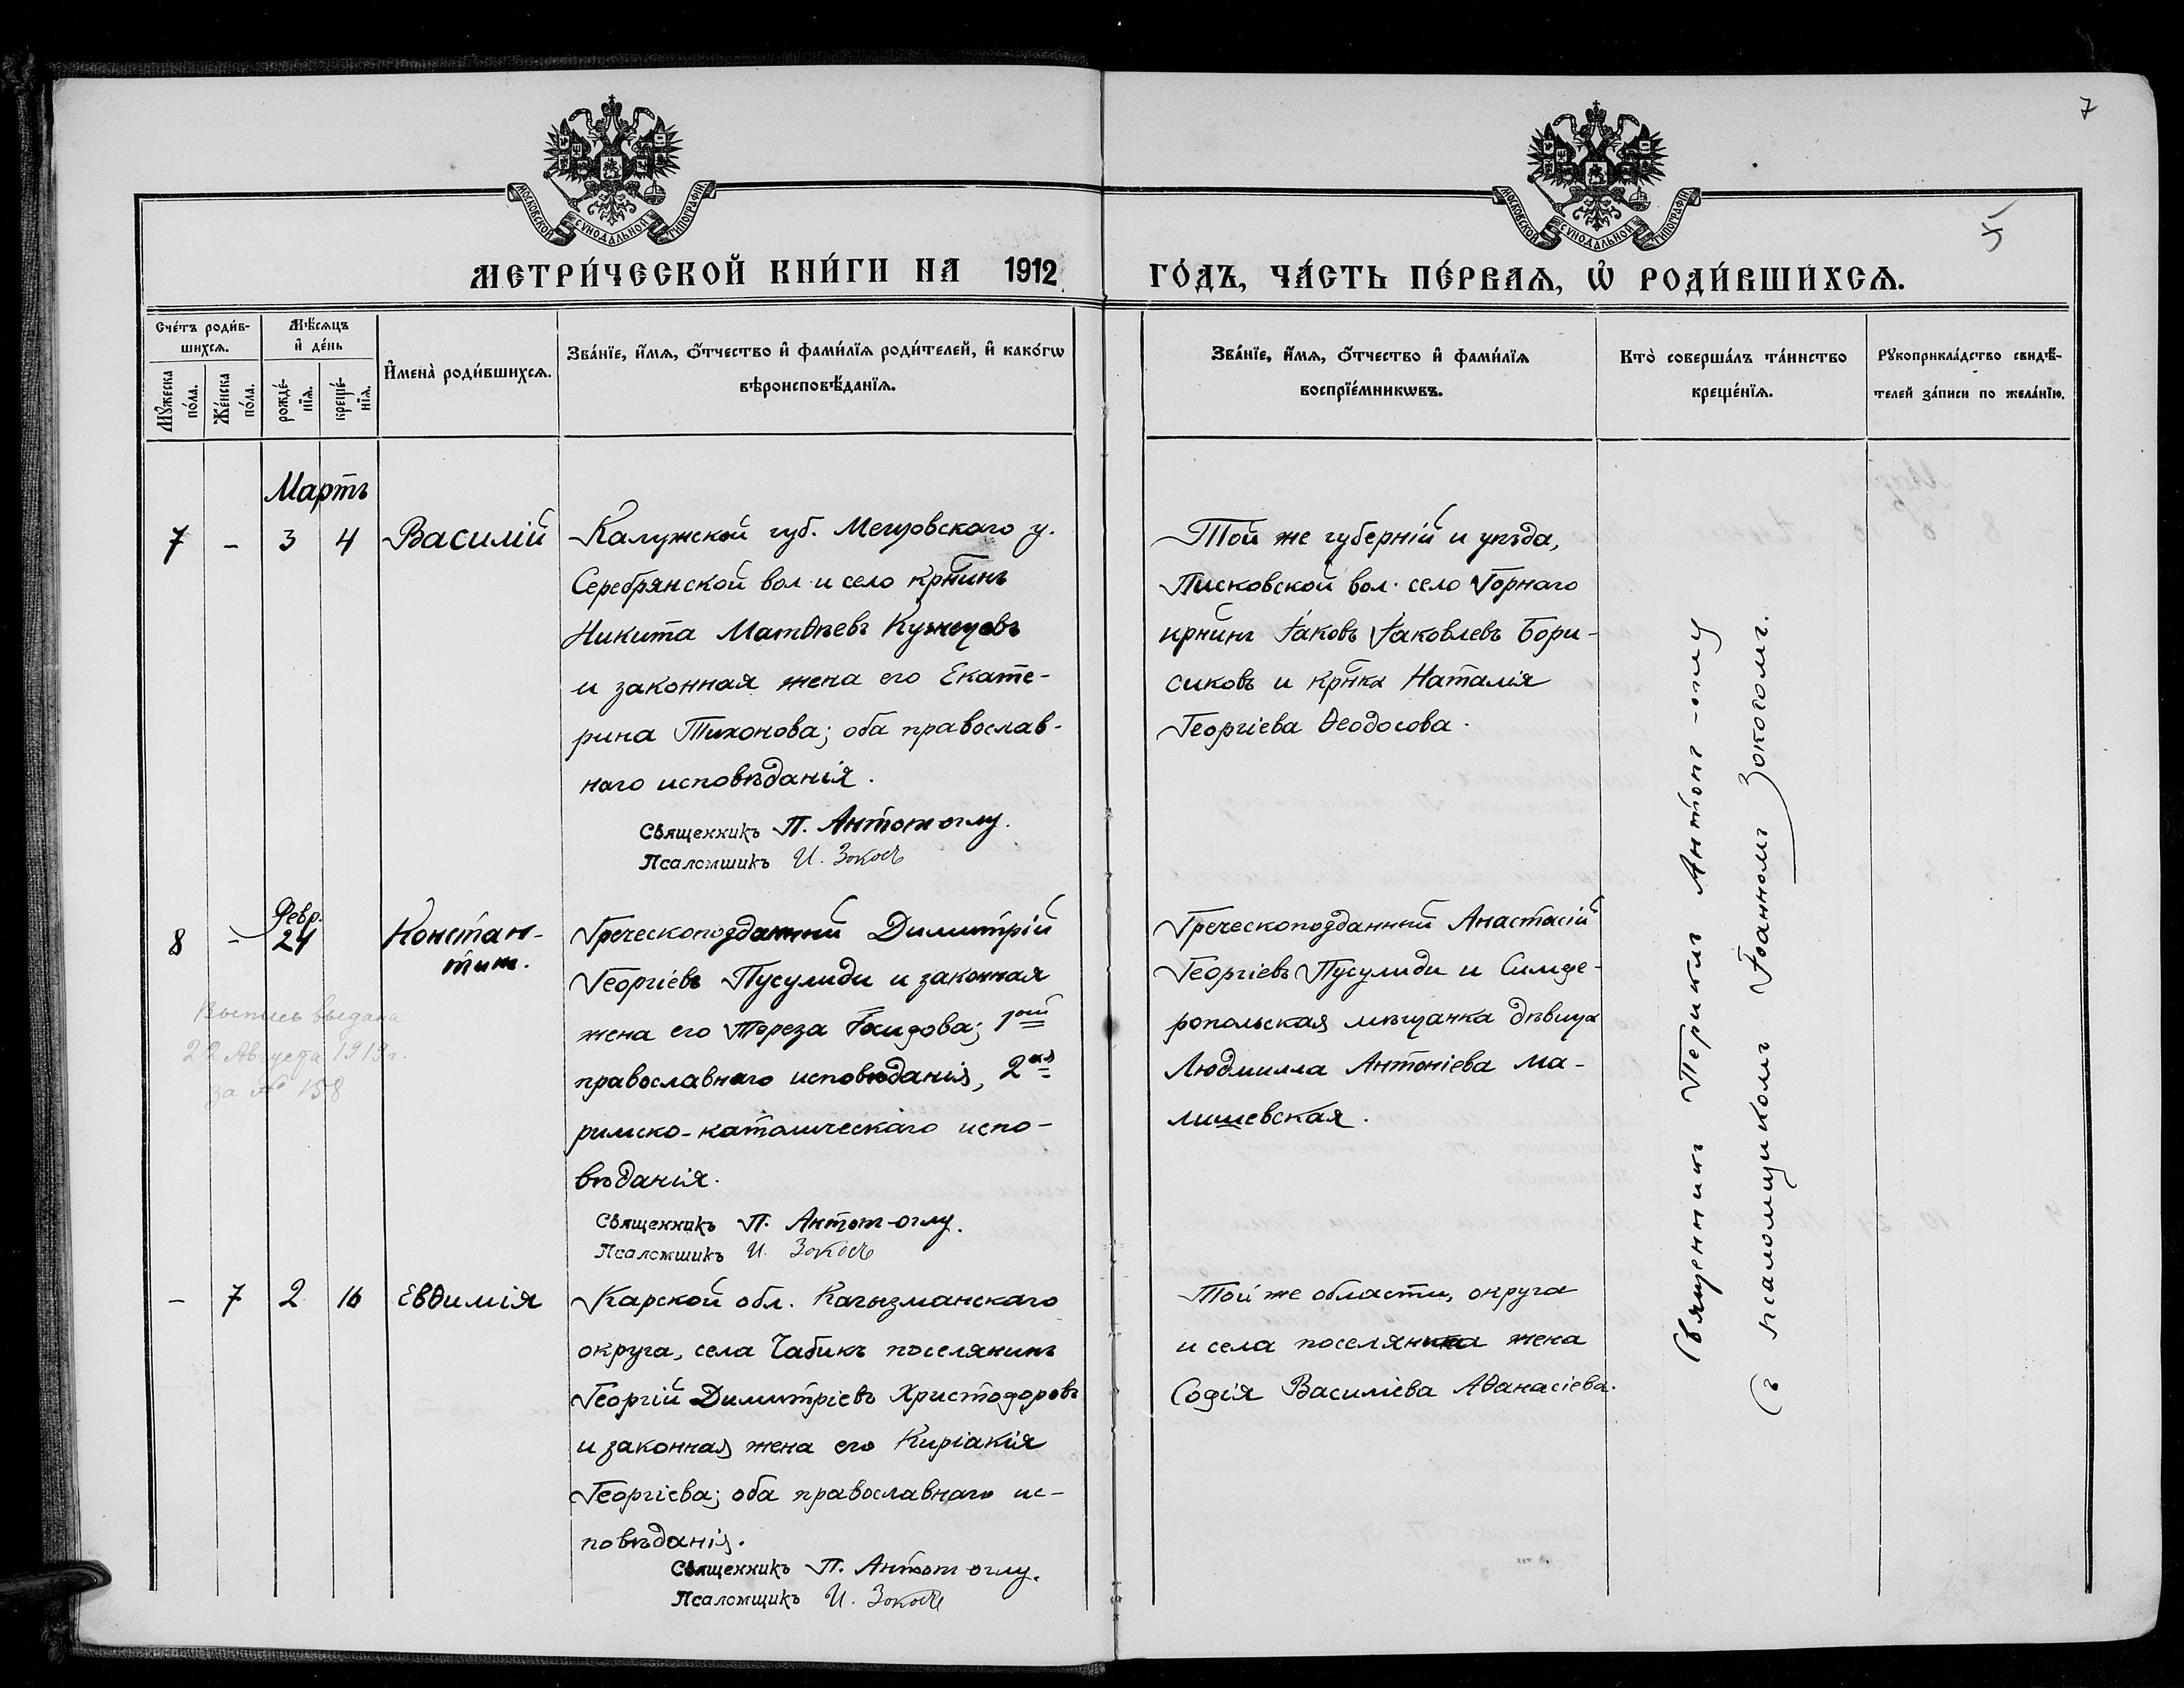 7
5
МОСКОВСКОЙ СѴНОДАЛЬНОЙ ТИПОГРАФІИ
МОСКОВСКОЙ СѴНОДАЛЬНОЙ ТИПОГРАФІИ
МЕТРИ́ЧЕСКОЙ КНИ́ГИ НА 1912
ГО́ДЪ, ЧА́СТЬ ПЕ́РВАѦ, Ѡ҆ РОДИ́ВШИХСѦ.
Сче́тъ роди́в-
шихсѧ.
Мꙋ́жеска по́ла.
Же́нска по́ла.
Мѣ́сѧцъ
и҆ де́нь
рожде́-
нїѧ.
креще́-
нїѧ.
И҆мена̀ роди́вшихсѧ.
Зва́нїе, и҆́мѧ, ѻ҆́тчество и҆ фами́лїѧ роди́телей, и҆ како́гѡ
вѣроисповѣ́данїѧ.
Зва́нїе, и҆́мѧ, ѻ҆́тчество и҆ фами́лїѧ
воспрїе́мникѡвъ.
Кто̀ соверша́лъ та́инство
креще́нїѧ.
Рꙋкоприкла́дство свидѣ́-
телей за́писи по жела́нїю.
Мартъ
7 - 3 4 Василій
Калужской губ. Мещовскаго у.
Серебрянской вол. и село крнинъ
Никита Матѳѣевъ Кузнецовъ
и законная жена его Екате-
рина Тихонова; оба православ-
наго исповѣданія.
Священникъ П. Антон оглу.
Псаломщикъ И.
Той же губерній и уѣзда,
Писковской вол. село Горнаго
крнинъ Іаковъ Іаковлевъ Бори-
сиковъ и крнка Наталія
Георгіева Ѳеодосова.
Февр.
8 - 24 Констан-
тинъ.
Греческоподданный Димитрій
Георгіевъ Пусулиди и законная
жена его Тереза 1ый
православнаго исповѣданія, 2ая
римско-католическаго испо-
вѣданія.
Священникъ П. Антон-оглу.
Псаломщикъ И.
Греческоподданный Анастасій
Георгіевъ Пусулиди и Симфе-
ропольская мѣщанка дѣвица
Людмилла Антоніева Ма-
лишевская.
Выпись выдана
22 Августа 1919 г.
за № 158
- 7 2 16 Евѳимія
Карской обл. Кагызманскаго
округа, села Чабикъ поселянинъ
Георгій Димитріевъ Христодоровъ
и законная жена его Киріакія
Георгіева; оба православнаго ис-
повѣданія.
Священникъ П. Антон оглу.
Псаломщикъ И.
Той же области, округа
и села поселянина жена
Софія Василіева Аѳанасіева.
Священникъ Периклъ Антонъ-оглу
съ псаломщикомъ Іоанномъ